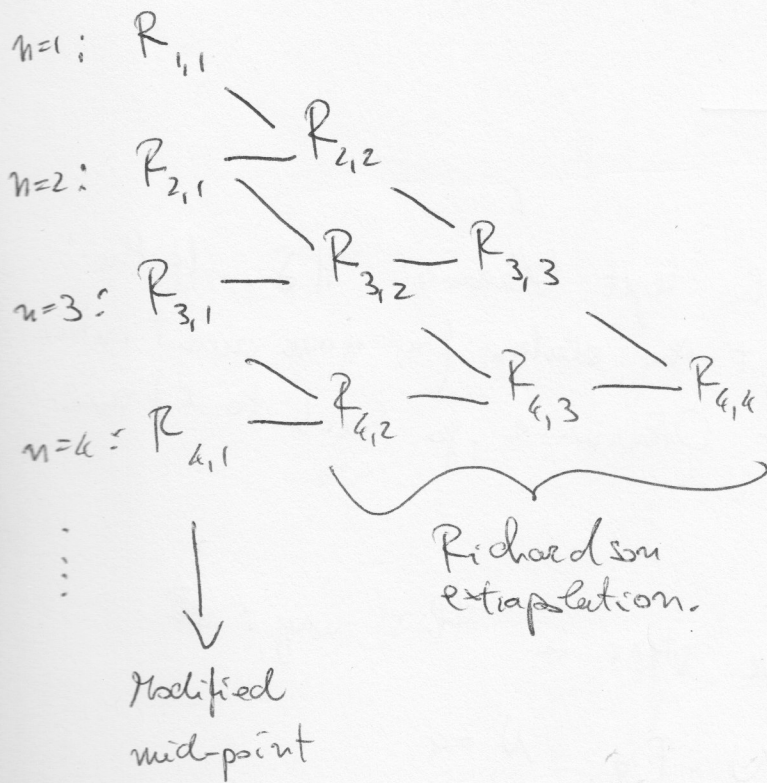 n=1: R1,1
R2,2
n=2: R2,1
R3,2 R3,3
n=3: R3,1
R4,2 R4,3 R4,4
n=4: R4,1
⋮
Richardson
extrapolation.
Modified
mid-point